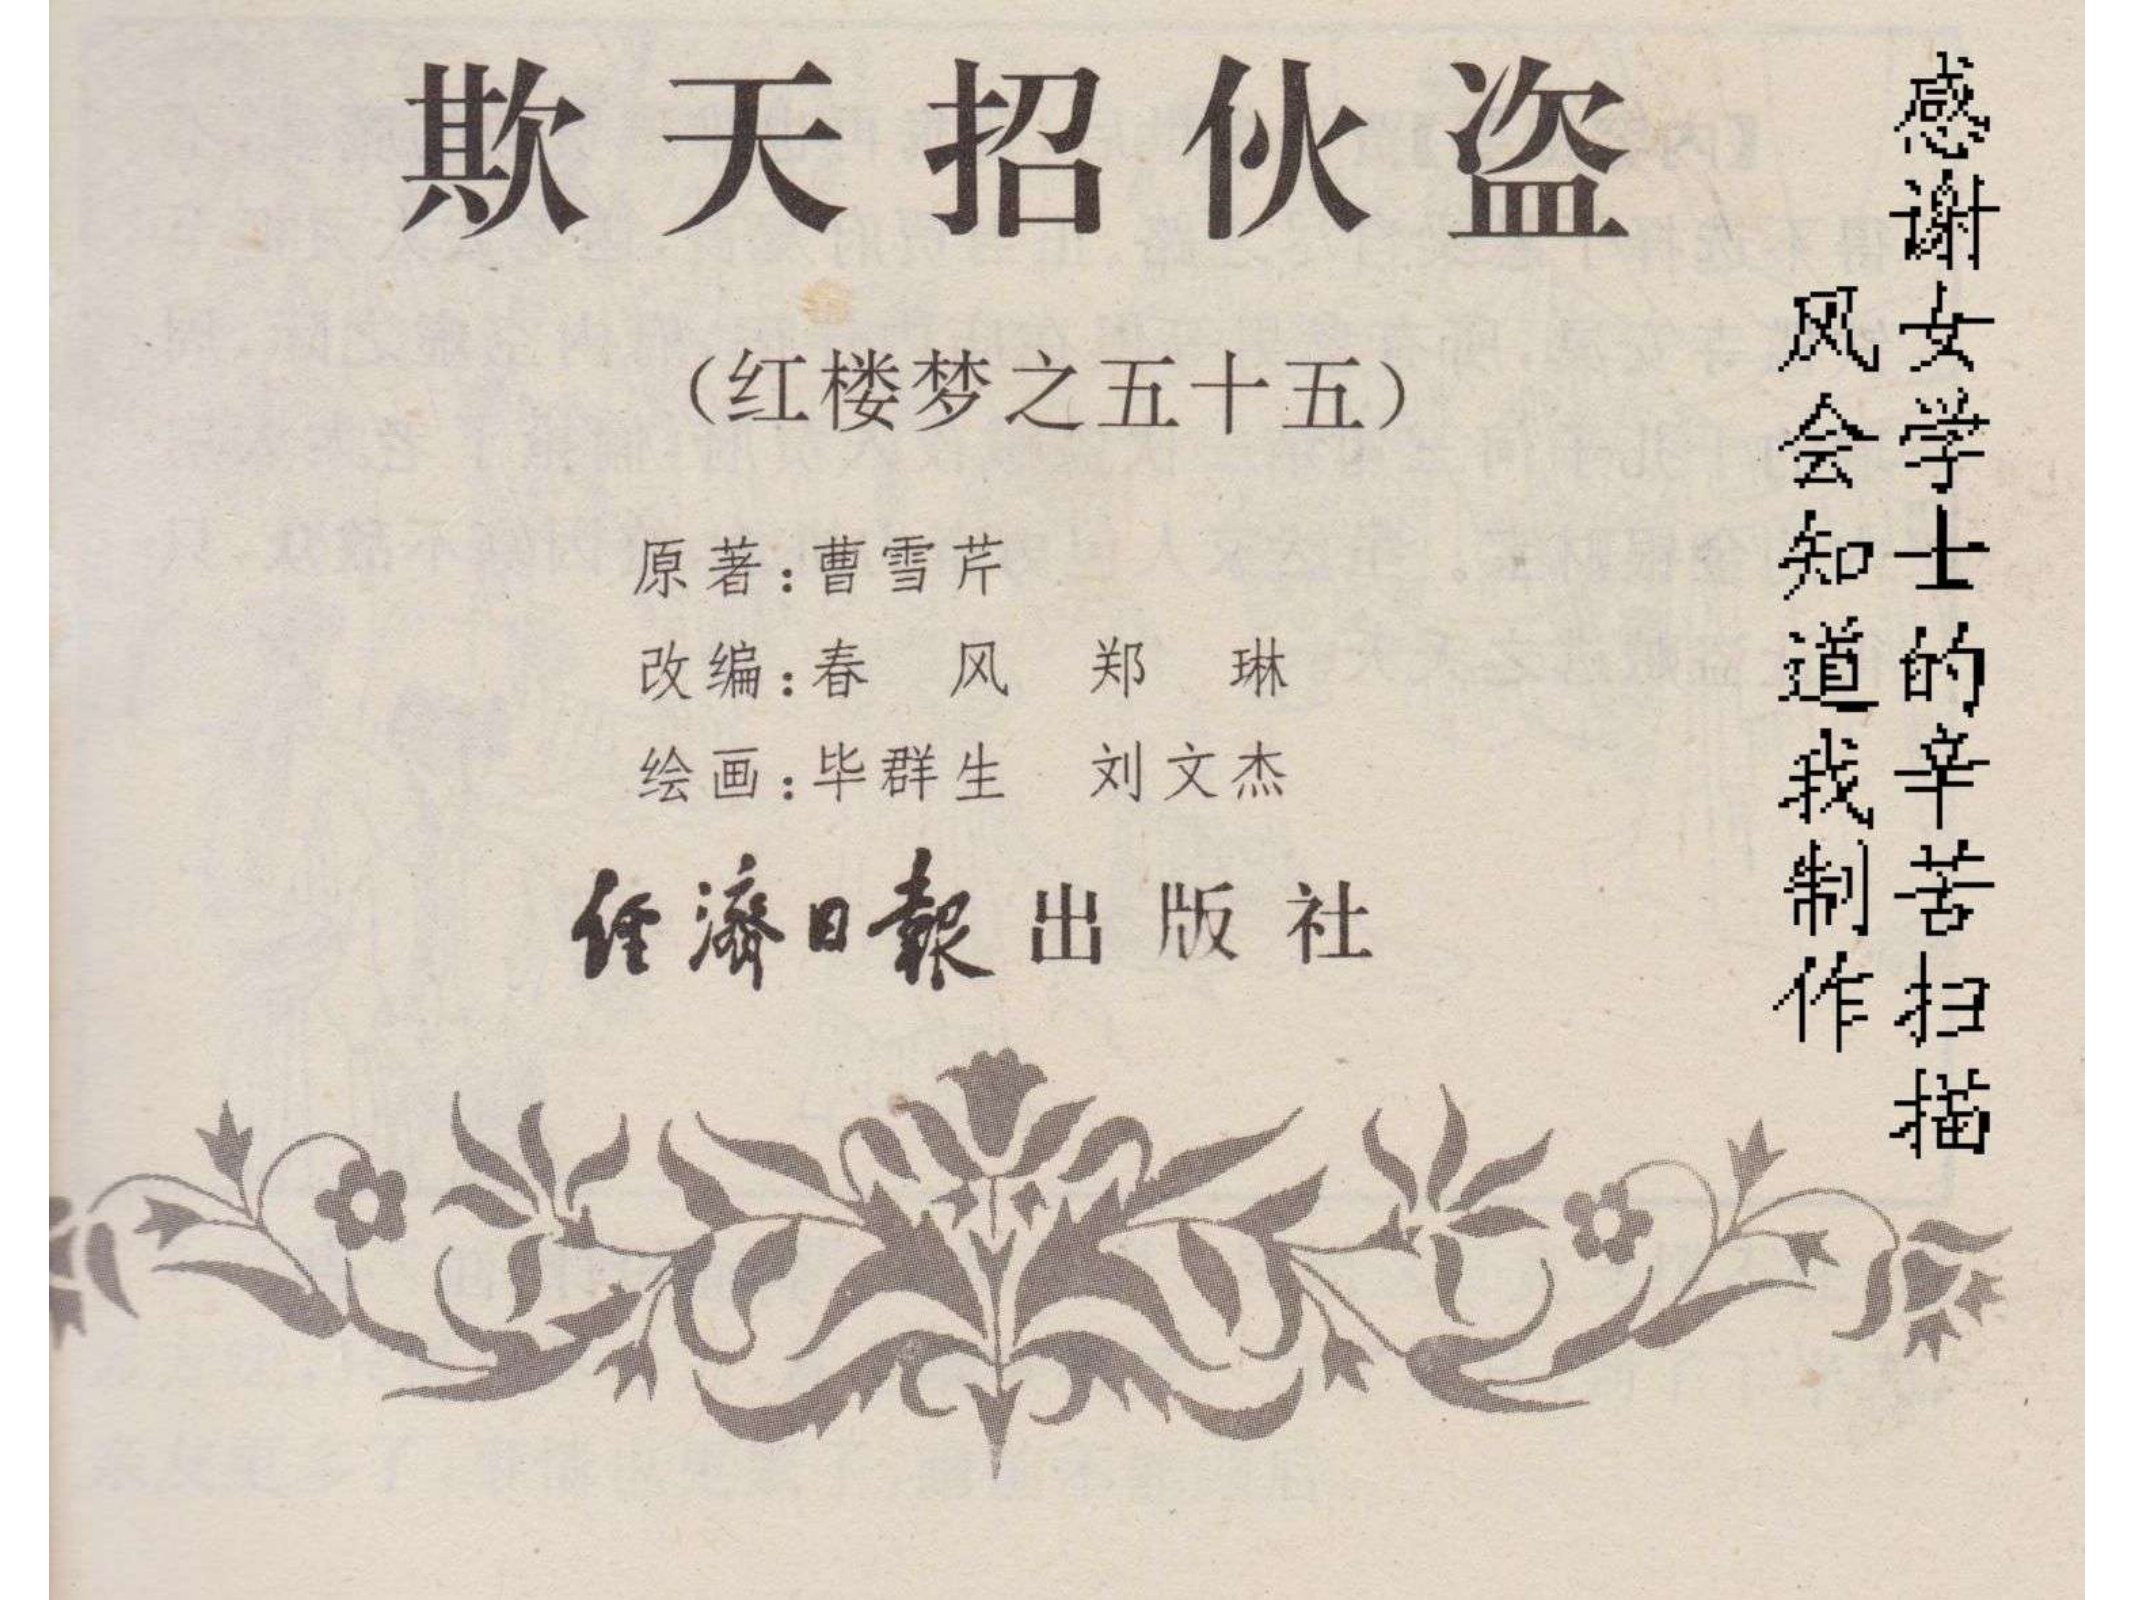 欺天招伙盗
（红楼梦之五十五）
原著：曹雪芹
改编：春　风　郑　琳
绘画：毕群生　刘文杰
经濟日報出版社
感谢女学士的辛苦扫描
风会知道我制作